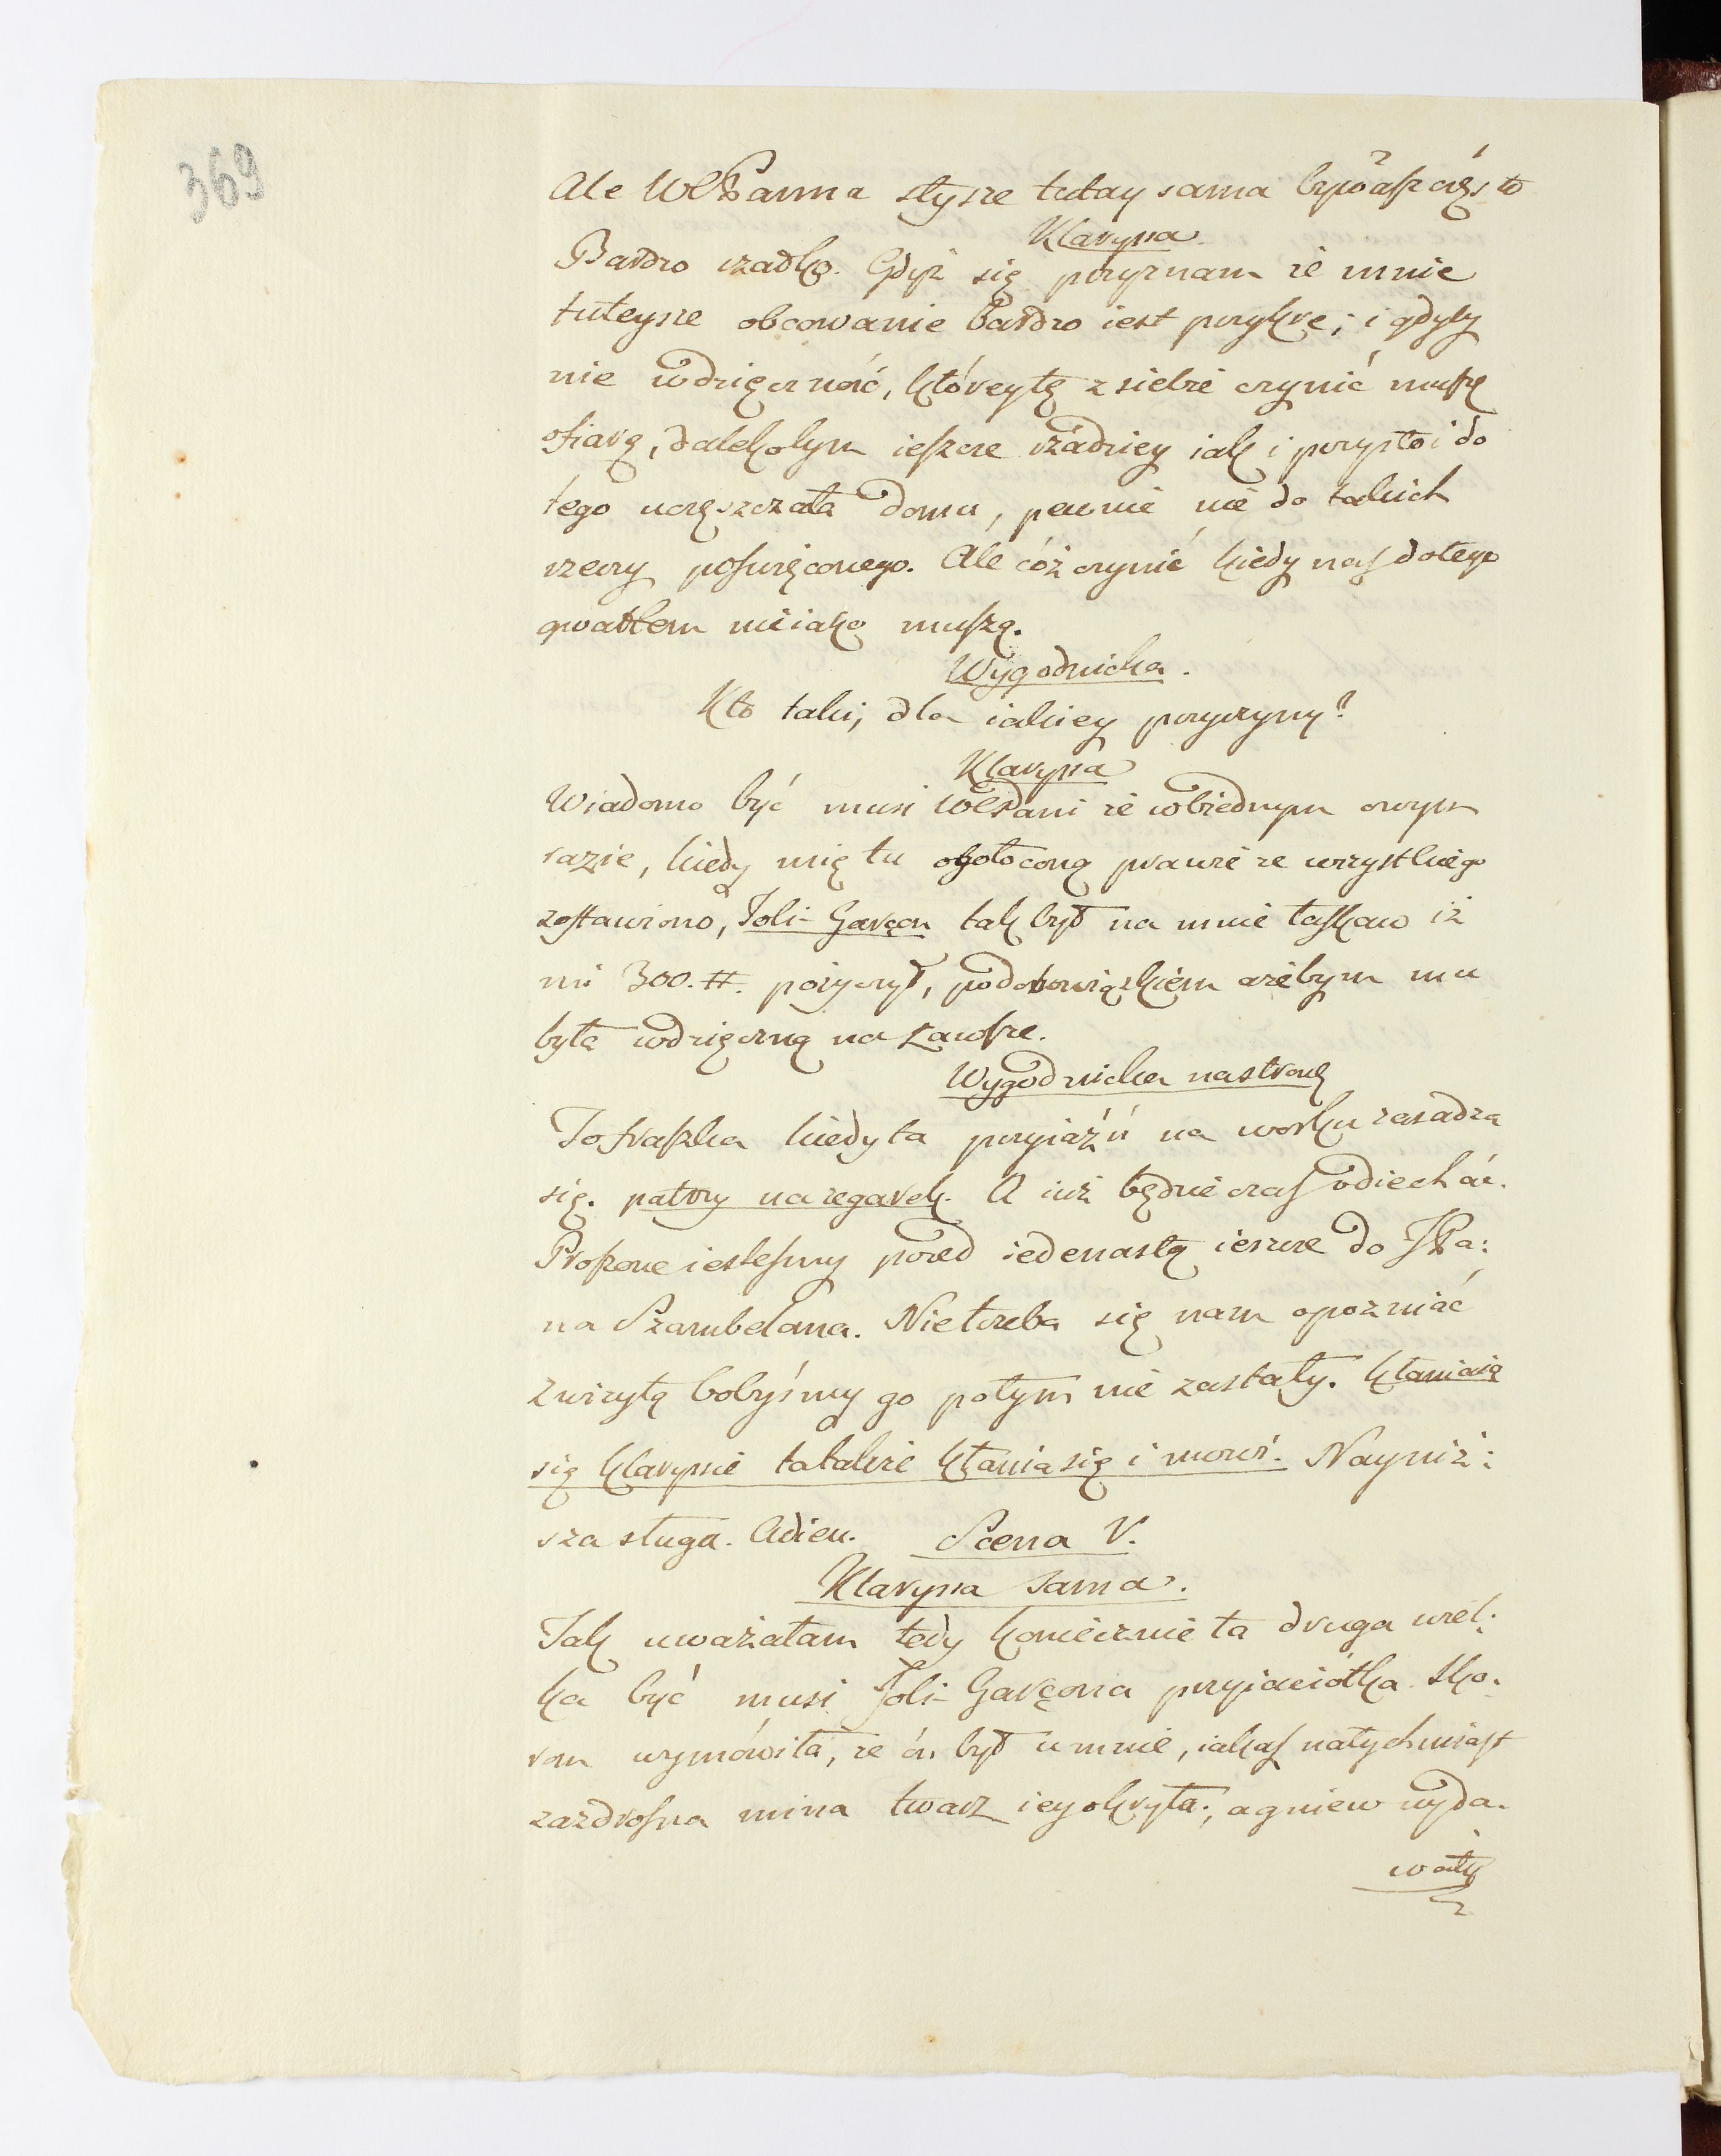 369
Ale WPanna słysze tutay sama bywasz często
Klaryssa
Bardzo rzadko. Gdyż się przyznam że mnie
tuteysze obcowanie bardzo iest przykre; i gdyby
nie wdzięczność, którey tę z siebie czynić muszę
ofiarę, dalekobym ieszcze rzadziey iak i przystoi do
tego uczęszczała domu, pewnie nie do takich
rzeczy poswięconego. Ale cóż czynić kiedy nas do tego
gwałtem nieiako muszą.
Wygodnicka.
Kto taki, dla iakiey przyczyny?
Klaryssa
Wiadomo być musi WPani że w biednym owym
razie, kiedy mię tu ogołoconą prawie ze wszystkiego
zostawiono, Joli-Garçon tak był na mnie łaskaw iż
mi 300. #. pożyczył, pod obowiązkiem ażebym mu
była wdzięczną na zawsze.
Wygodnicka na stronę
To fraszka kiedy ta przyiaźń na worku zasadza
się. patrzy na zegarek. A iuż będzie czas odiechać.
Proszone iestesmy przed iedenastą ieszcze do JPa:
na Szambelana. Nietrzeba się nam opozniać
z wizytą bobyśmy go potym nie zastały. kłaniaią
się Klaryssie ta także kłania się i mowi. Nayniż:
sza sługa. Adieu. Scena V.
Klaryssa sama.
Jak uważałam tedy koniecznie ta druga wiel:
ka być musi Joli-Garçona przyiaciółka. Sko:
rom wymówiła, że ón był u mnie, iakaś natychmiast
zazdrosna mina twarz iey okryła; a gniew wyda:
wały